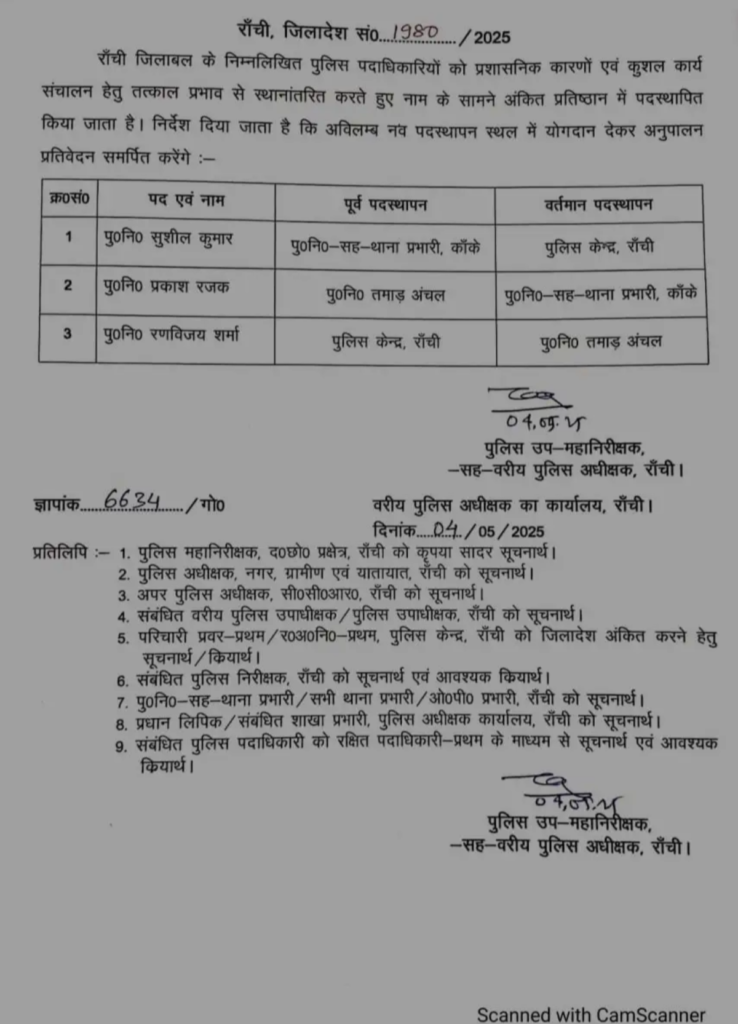 राँची, जिलादेश सं०...1980.../2025
राँची जिलाबल के निम्नलिखित पुलिस पदाधिकारियों को प्रशासनिक कारणों एवं कुशल कार्य
संचालन हेतु तत्काल प्रभाव से स्थानांतरित करते हुए नाम के सामने अंकित प्रतिष्ठान में पदस्थापित
किया जाता है। निर्देश दिया जाता है कि अविलम्ब नव पदस्थापन स्थल में योगदान देकर अनुपालन
प्रतिवेदन समर्पित करेंगे :–
क्र०सं० पद एवं नाम पूर्व पदस्थापन वर्तमान पदस्थापन
1 पु०नि० सुशील कुमार पु०नि०–सह–थाना प्रभारी, काँके पुलिस केन्द्र, राँची
2 पु०नि० प्रकाश रजक पु०नि० तमाड़ अंचल पु०नि०–सह–थाना प्रभारी, काँके
3 पु०नि० रणविजय शर्मा पुलिस केन्द्र, राँची पु०नि० तमाड़ अंचल
04.05.25
पुलिस उप–महानिरीक्षक,
–सह–वरीय पुलिस अधीक्षक, राँची।
ज्ञापांक....6634..../गो० वरीय पुलिस अधीक्षक का कार्यालय, राँची।
दिनांक....04../05/2025
प्रतिलिपि :– 1. पुलिस महानिरीक्षक, द०छो० प्रक्षेत्र, राँची को कृपया सादर सूचनार्थ।
2. पुलिस अधीक्षक, नगर, ग्रामीण एवं यातायात, राँची को सूचनार्थ।
3. अपर पुलिस अधीक्षक, सी०सी०आर०, राँची को सूचनार्थ।
4. संबंधित वरीय पुलिस उपाधीक्षक/पुलिस उपाधीक्षक, राँची को सूचनार्थ।
5. परिचारी प्रवर–प्रथम/र०अ०नि०–प्रथम, पुलिस केन्द्र, राँची को जिलादेश अंकित करने हेतु
सूचनार्थ/क्रियार्थ।
6. संबंधित पुलिस निरीक्षक, राँची को सूचनार्थ एवं आवश्यक क्रियार्थ।
7. पु०नि०–सह–थाना प्रभारी/सभी थाना प्रभारी/ओ०पी० प्रभारी, राँची को सूचनार्थ।
8. प्रधान लिपिक/संबंधित शाखा प्रभारी, पुलिस अधीक्षक कार्यालय, राँची को सूचनार्थ।
9. संबंधित पुलिस पदाधिकारी को रक्षित पदाधिकारी–प्रथम के माध्यम से सूचनार्थ एवं आवश्यक
क्रियार्थ।
04.05.25
पुलिस उप–महानिरीक्षक,
–सह–वरीय पुलिस अधीक्षक, राँची।
Scanned with CamScanner